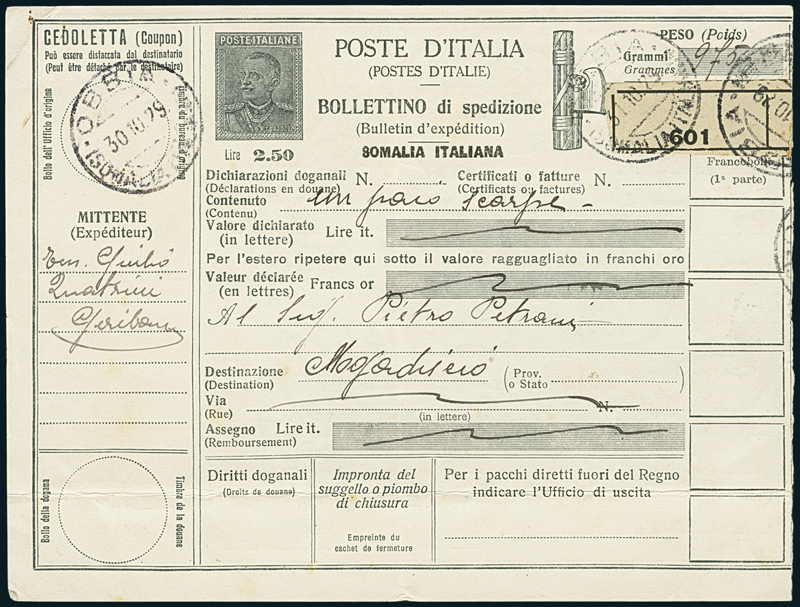 CEDOLETTA (Coupon)
Può essere distaccata dal destinatario
(Peut être détaché par le destinataire)
Bollo dell'Ufficio d'origine
OBBIA
30.10.29
(SOMALIA
MITTENTE
(Expéditeur)
Ten. Giulio
Quatrini
Bollo della dogana
Timbre de la douane
POSTE ITALIANE
Lire 2.50
POSTE D'ITALIA
(POSTES D'ITALIE)
BOLLETTINO di spedizione
(Bulletin d'expédition)
SOMALIA ITALIANA
PESO (Poids)
Grammi
Grammes
975
601
Francobolli
(1ª parte)
Dichiarazioni doganali
(Déclarations en douane) N.
Certificati o fatture
(Certificats ou factures) N.
Contenuto
(Contenu)
un paio scarpe
Valore dichiarato
(in lettere) Lire it.
Per l'estero ripetere qui sotto il valore ragguagliato in franchi oro
Valeur déclarée
(en lettres) Francs or
Al Sig. Pietro Petrani
Destinazione
(Destination)
Mogadiscio
(Prov.
o Stato
)
Via
(Rue)
N.
(in lettere)
Assegno
(Remboursement) Lire it.
Diritti doganali
(Droits de douane)
Impronta del
suggello o piombo
di chiusura
Empreinte du
cachet de fermeture
Per i pacchi diretti fuori del Regno
indicare l'Ufficio di uscita